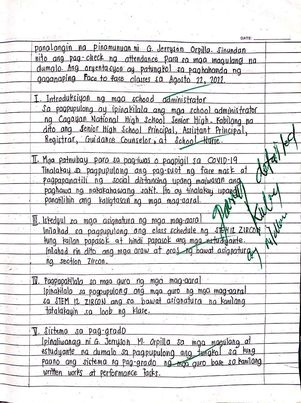 DATE:
panalangin na pinamunuan ni G. Jerryson Orpilla. Sinundan
nito ang pag-check ng attendance para sa mga magulang na
dumalo. Ang oryentasyon ay patungkol sa paghahanda ng
gaganaping Face to Face classes sa Agosto 22, 2022.
I. Introduksiyon ng mga school administrator
Sa pagpupulong ay ipinakilala ang mga school administrator
ng Cagayan National High School Senior High. Kabilang na
dito ang Senior High School Principal, Assistant Principal,
Registrar, Guidance Counselor, at School Nurse.
II. Mga patnubay para sa pag-iwas o pagpigil sa COVID-19
Tinalakay sa pagpupulong ang pag-suot ng face mask at
pagpapanatili ng social distancing upang maiwasan ang
paghawa ng nakakahawang sakit. Ito ay tinalakay upang
panatilihin ang kaligtasan ng mga mag-aaral.
III. Iskedyul ng mga asignatura ng mga mag-aaral
Inilahad sa pagpupulong ang class schedule ng STEM 12 ZIRCON
kung kailan papasok at hindi papasok ang mga estudyante.
Inilahad rin dito ang mga araw at oras ng bawat asignatura
ng section Zircon.
IV. Pagpapakilala sa mga guro ng mga mag-aaral
Ipinakilala sa pagpupulong ang mga guro ng mga mag-aaral
sa STEM 12 ZIRCON at ang bawat asignatura na kanilang
tatalakayin sa loob ng klase.
V. Sistema sa pag-grado
Ipinaliwanag ni G. Jerryson M. Orpilla sa mga magulang at
estudyante na dumalo sa pagpupulong ang tungkol sa kung
paano ang sistema ng pag-grado ng mga guro base sa kanilang
written works at performance tasks.
detailed